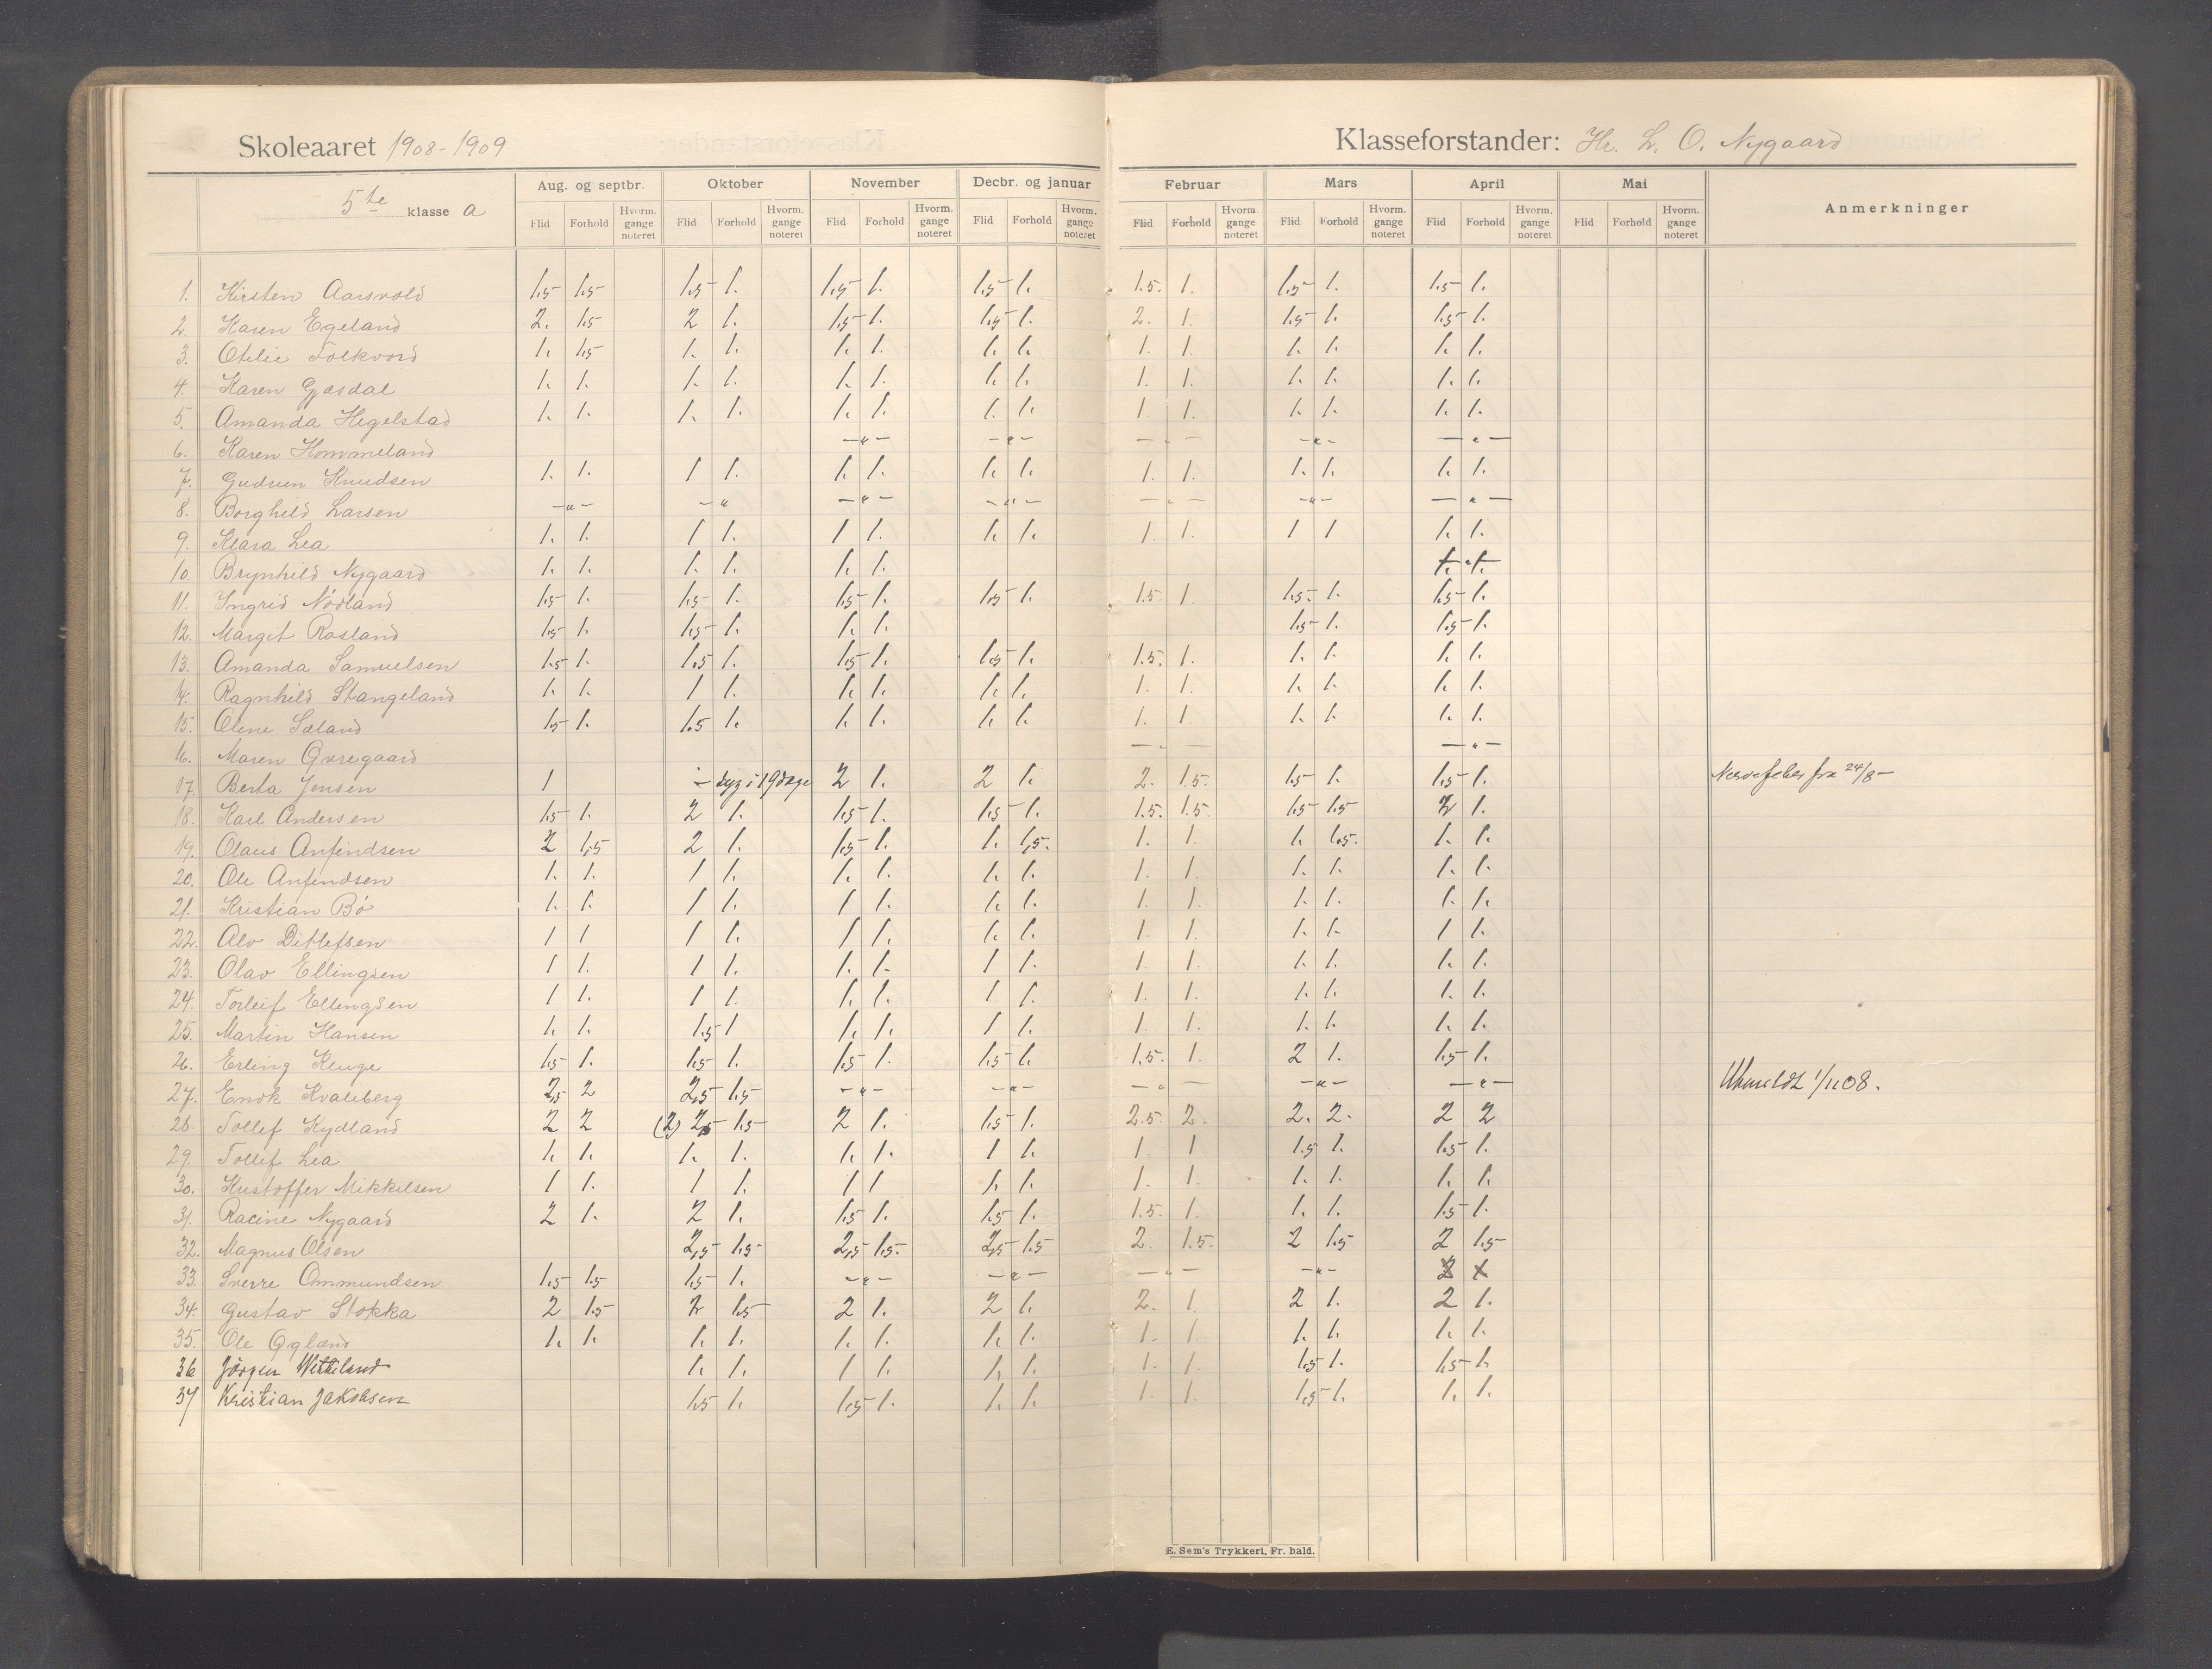 Skoleaaret 1908-1909
Klasseforstander: Hr. L. O. Nygaard
5te klasse a
Aug. og septbr. Oktober November Decbr. og januar Februar Mars April Mai Anmerkninger
Flid Forhold Hvorm. gange noteret Flid Forhold Hvorm. gange noteret Flid Forhold Hvorm. gange noteret Flid Forhold Hvorm. gange noteret Flid Forhold Hvorm. gange noteret Flid Forhold Hvorm. gange noteret Flid Forhold Hvorm. gange noteret Flid Forhold Hvorm. gange noteret
1. Kirsten Aarsvold 1.5 1.5 1.5 1. 1.5 1. 1.5 1. 1.5. 1. 1.5 1. 1.5 1.
2. Karen Egeland 2. 1.5 2 1. 1.5 1. 1.5 1. 2. 1. 1.5 1. 1.5 1.
3. Otilie Folkvord 1. 1.5 1. 1. 1. 1. 1. 1. 1. 1. 1. 1. 1. 1.
4. Karen Gjesdal 1. 1. 1. 1. 1. 1. 1. 1. 1. 1. 1. 1. 1. 1.
5. Amanda Hegelstad 1. 1. 1. 1. 1. 1. 1. 1. 1. 1. 1. 1. 1. 1.
6. Karen Hommeland -"- -"- -"- -"- -"-
7. Gudrun Knudsen 1. 1. 1 1. 1. 1. 1. 1. 1. 1. 1. 1. 1. 1.
8. Borghild Larsen -"- -" -"- -"- -"- -"- -"-
9. Klara Lea 1. 1. 1 1. 1 1. 1. 1. 1. 1. 1 1 1. 1.
10. Brynhild Nygaard 1. 1. 1. 1. 1. 1. 1. 1.
11. Ingrid Nödland 1.5 1. 1.5 1. 1.5 1. 1.5 1. 1.5. 1 1.5. 1. 1.5 1.
12. Margit Rosland 1.5 1. 1.5 1. 1. 1. 1.5 1. 1.5 1.
13. Amanda Samuelsen 1.5 1. 1.5 1. 1.5 1. 1.5 1. 1.5. 1. 1. 1. 1. 1.
14. Ragnhild Stangeland 1. 1. 1 1. 1. 1. 1. 1. 1. 1. 1. 1. 1. 1.
15. Olene Sæland 1.5 1. 1.5 1. 1. 1. 1. 1. 1. 1. 1. 1. 1. 1.
16. Maren Øvregaard -"- -"-
17. Berta Jensen 1 - syg i 19 dage 2 1. 2 1. 2. 1.5. 1.5 1. 1.5 1. Nervefeber fra 24/8-
18. Karl Andersen 1.5 1. 2 1. 1.5 1. 1.5 1. 1.5. 1.5. 1.5 1.5 2 1.
19. Olaus Anfindsen 2 1.5 2 1. 1.5 1. 1. 1.5. 1. 1. 1. 1.5. 1. 1.
20. Ole Anfindsen 1. 1. 1 1. 1. 1. 1. 1. 1. 1. 1. 1. 1. 1.
21. Kristian Bö 1. 1. 1 1. 1 1. 1. 1. 1. 1. 1. 1. 1. 1.
22. Alv Ditlefsen 1 1 1 1. 1 1. 1. 1. 1. 1. 1. 1. 1 1.
23. Olav Ellingsen 1 1. 1 1. 1. 1. 1 1. 1. 1. 1. 1. 1. 1.
24. Torleif Ellingsen 1 1. 1 1. 1. 1. 1 1. 1. 1. 1. 1. 1. 1.
25. Martin Hansen 1. 1. 1.5 1 1. 1. 1 1. 1. 1. 1. 1. 1. 1.
26. Erling Kluge 1.5 1. 1.5 1. 1.5 1. 1.5 1. 1.5. 1. 2 1. 1.5 1.
27. Endk Kvaleberg 2,5 2 2,5 1.5 -"- -"- -"- -"- -"- Utmeldt 1/11 08.
28. Tollef Kydland 2 2 (2) 2,5 1.5 2 1. 1.5 1. 2.5. 2. 2. 2. 2 2
29. Tollef Lea 1. 1. 1. 1. 1. 1. 1 1. 1. 1. 1.5 1. 1.5 1.
30. Kristoffer Mikkelsen 1 1. 1 1. 1 1 1. 1. 1. 1. 1. 1. 1. 1.
31. Racine Nygaard 2 1. 2 1. 1.5 1. 1.5 1. 1.5. 1. 1. 1. 1.5 1.
32. Magnus Olsen 2,5 1.5 2,5 1.5. 2,5 1.5 2. 1.5. 2 1.5 2 1.5
33. Sverre Ommundsen 1.5 1.5 1.5 1. -"- -"- -"- -"-
34. Gustav Stokka 2 1.5 2 1.5 2 1. 2 1. 2. 1. 2 1. 2 1.
35. Ole Øgland 1. 1. 1. 1. 1. 1. 1. 1. 1. 1. 1. 1. 1. 1.
36 Jörgen Wetteland 1. 1. 1 1. 1. 1. 1. 1. 1.5 1. 1.5 1.
37 Kristian Jakobsen 1.5 1. 1.5 1. 1. 1. 1. 1. 1.5 1. 1. 1.
E. Sem's Trykkeri, Fr. hald.